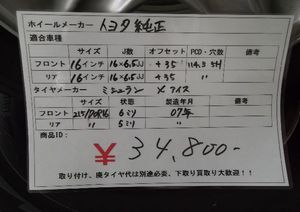 ホイールメーカー トヨタ純正
適合車種
サイズ J数 オフセット PCD・穴数 備考
フロント 16インチ 16×6.5JJ +35 114.3 5H
リア 16インチ 16×6.5JJ +35 〃
タイヤメーカー ミシュラン Xアイス
サイズ 状態 製造年月 備考
フロント 215/70R16 6ミリ 07年
リア 〃 5ミリ 〃
商品ID:
¥34,800-
取り付け、廃タイヤ代は別途必要、下取り買取り大歓迎!!